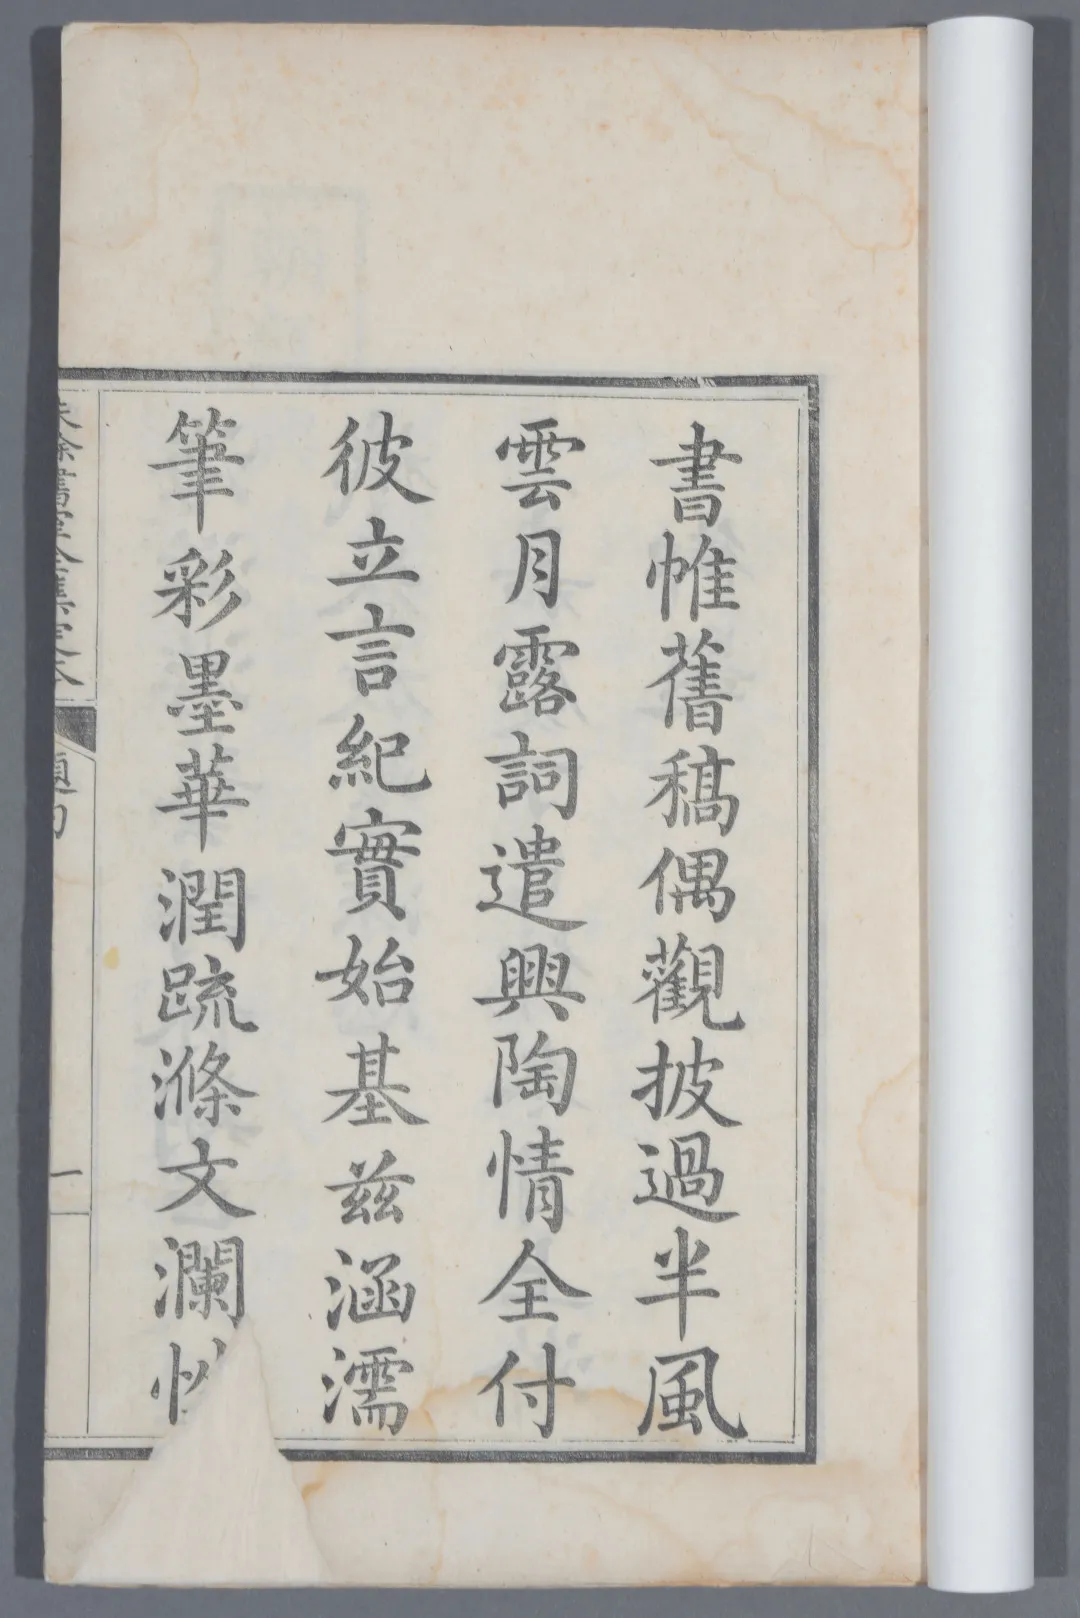 書帷舊稿偶觀披過半風
雲月露詞遣興陶情全付
彼立言紀實始基茲涵濡
筆彩墨華潤疏滌文瀾
題
一